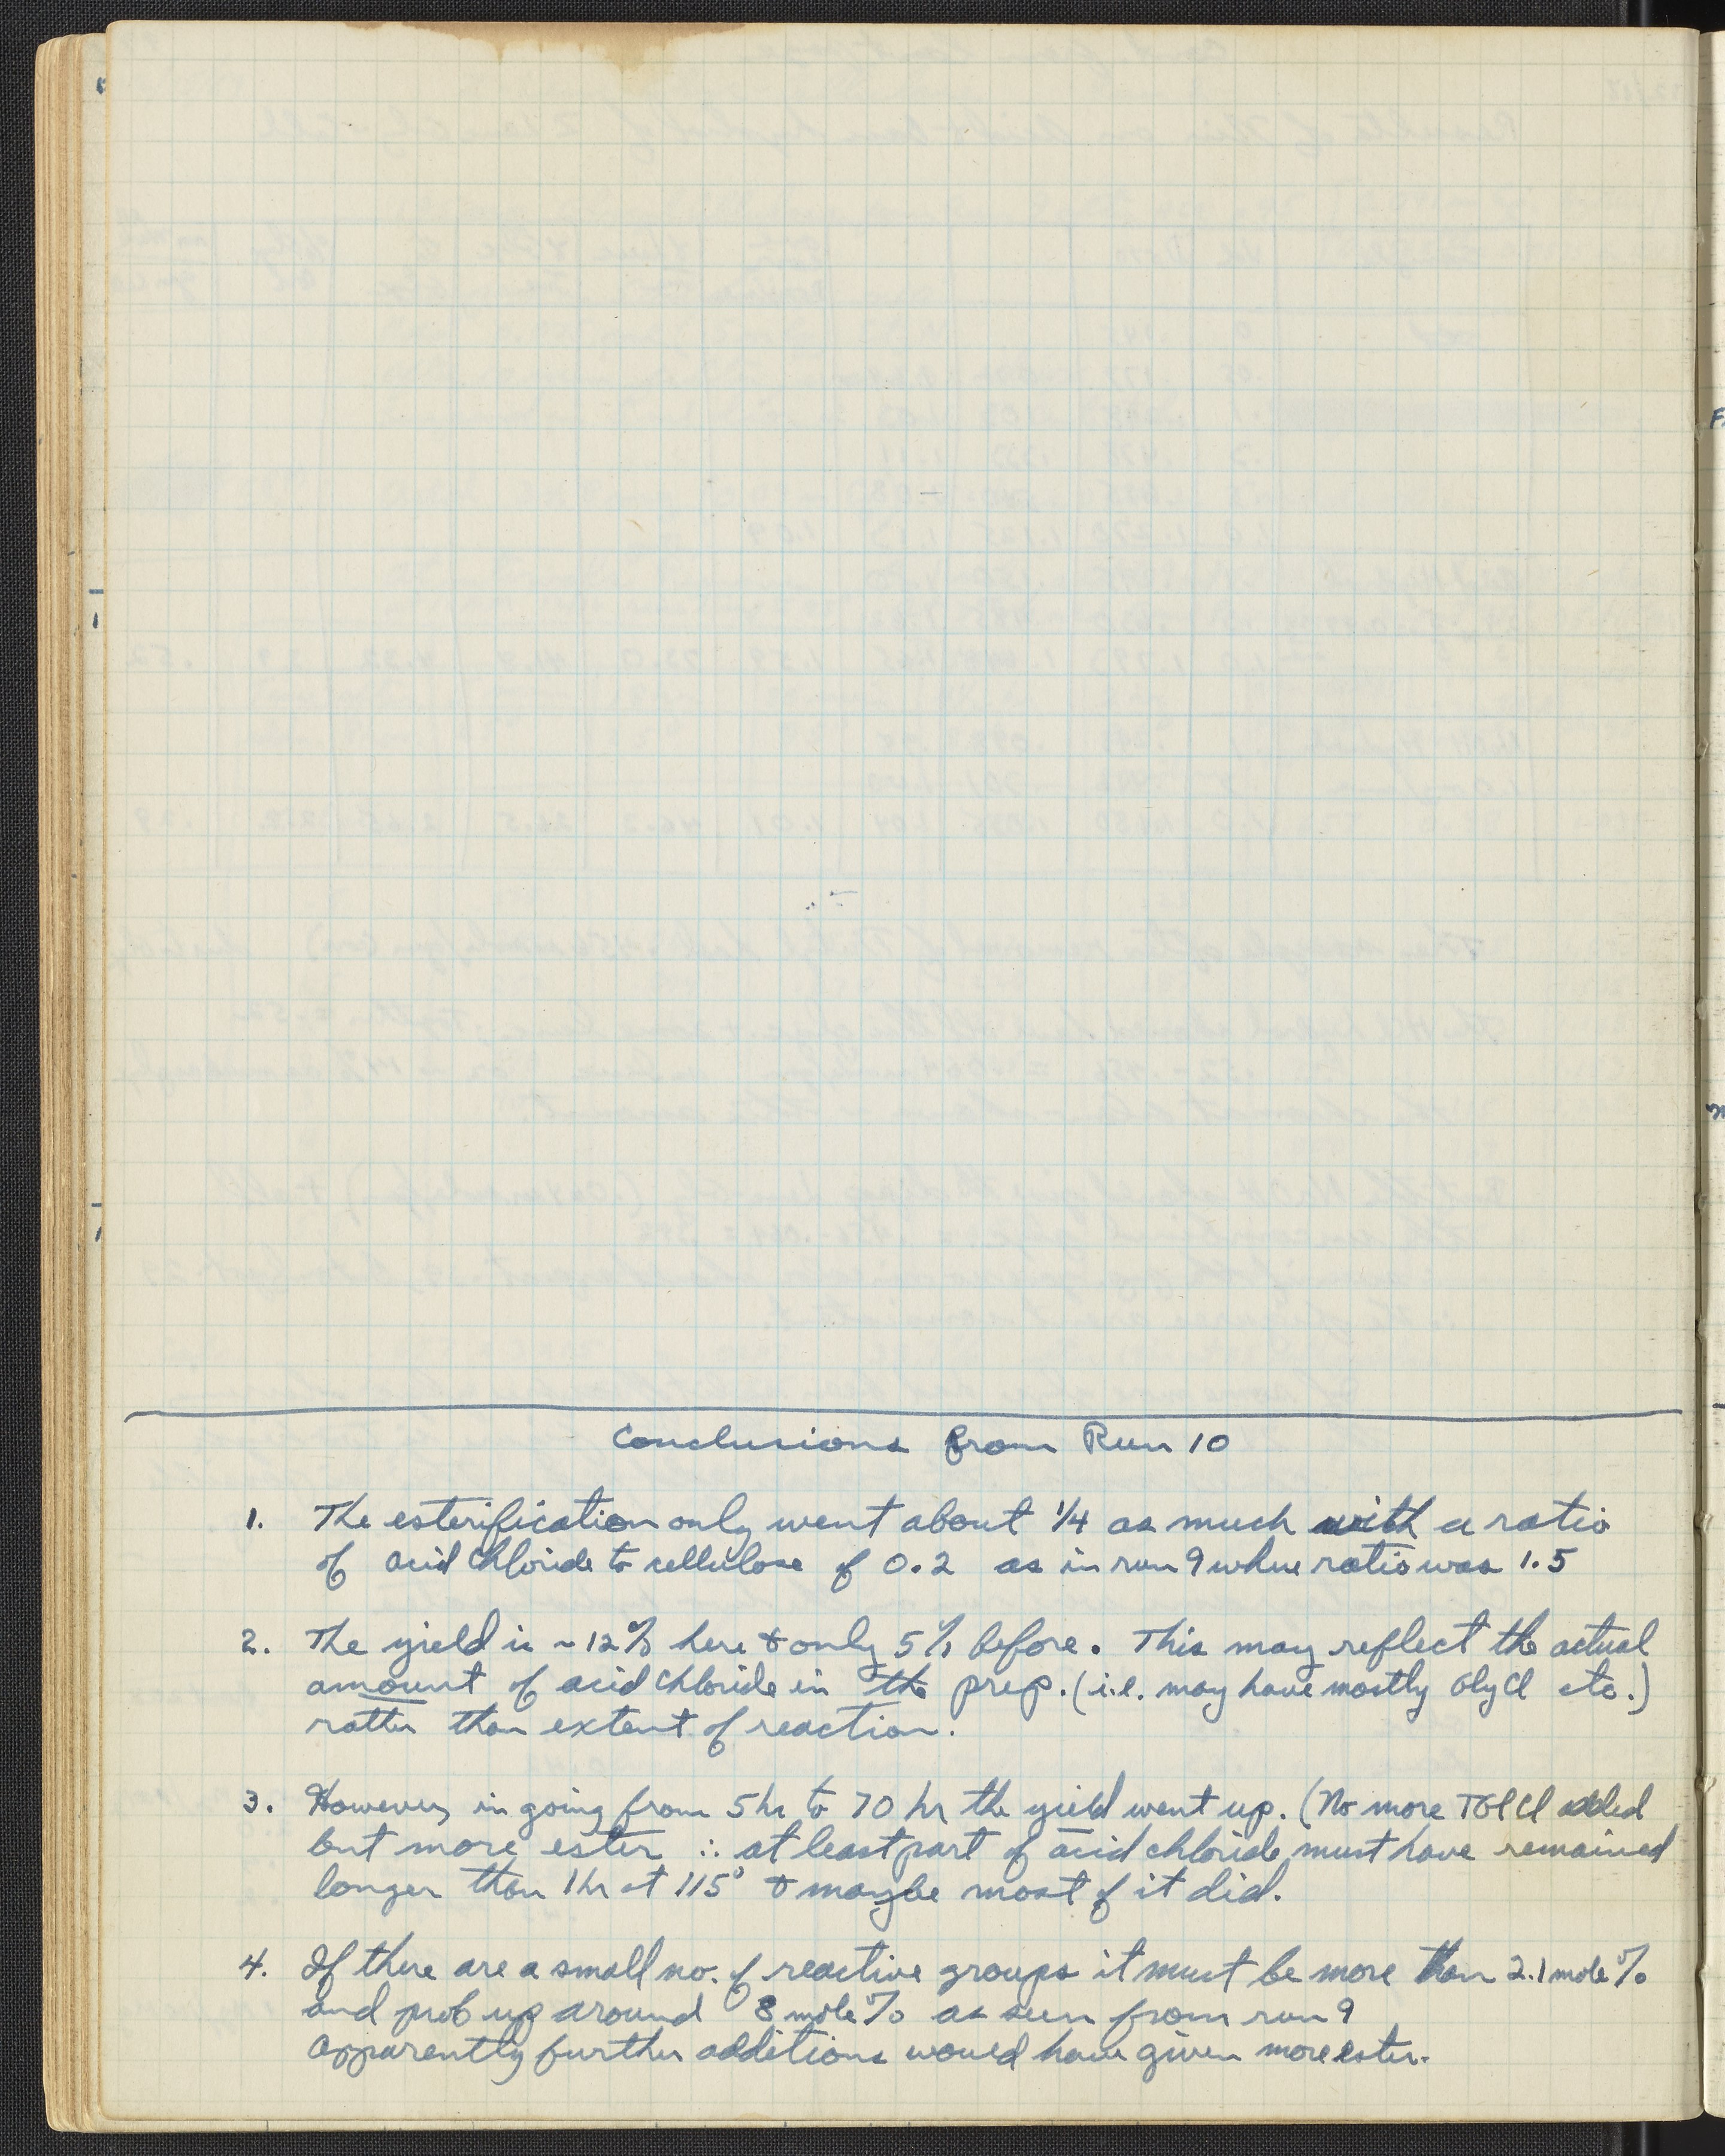 Conclusions from Run 10
1. The esterification only went about 1/4 as much with a ratio
of acid chloride to cellulose of 0.2 as in run 9 where ratio was 1.5
2. The yield is ~12% here & only 5% before. This may reflect the actual
amount of acid chloride in the prep. (i.e. may have mostly GlyCl etc.)
rather than extent of reaction.
3. However, in going from 5 hr to 70 hr the yield went up. (No more added
but more ester ∴ at least part of acid chloride must have remained
longer than 1 hr at 115° & maybe most of it did.
4. If there are a small no. of reactive groups it must be more than 2.1 mole %
and prob up around 8 mole % as seen from run 9
Apparently further additions would have given more ester.